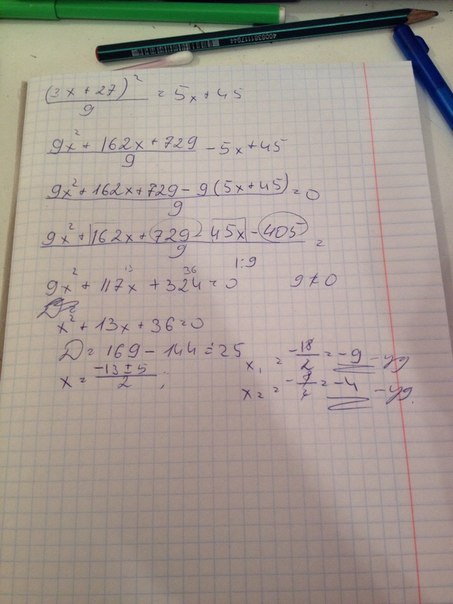 (3x + 27)² / 9 = 5x + 45
9x² + 162x + 729 / 9 - 5x + 45
9x² + 162x + 729 - 9(5x + 45) / 9 = 0
9x² + 162x + 729 - 45x - 405 / 9 =
1:9
13 36
9x² + 117x + 324 = 0 9 ≠ 0
x² + 13x + 36 = 0
D = 169 - 144 = 25
x = -13 ± 5 / 2 ;
x₁ = -18 / 2 = -9 - уд
x₂ = = -4 - уд.